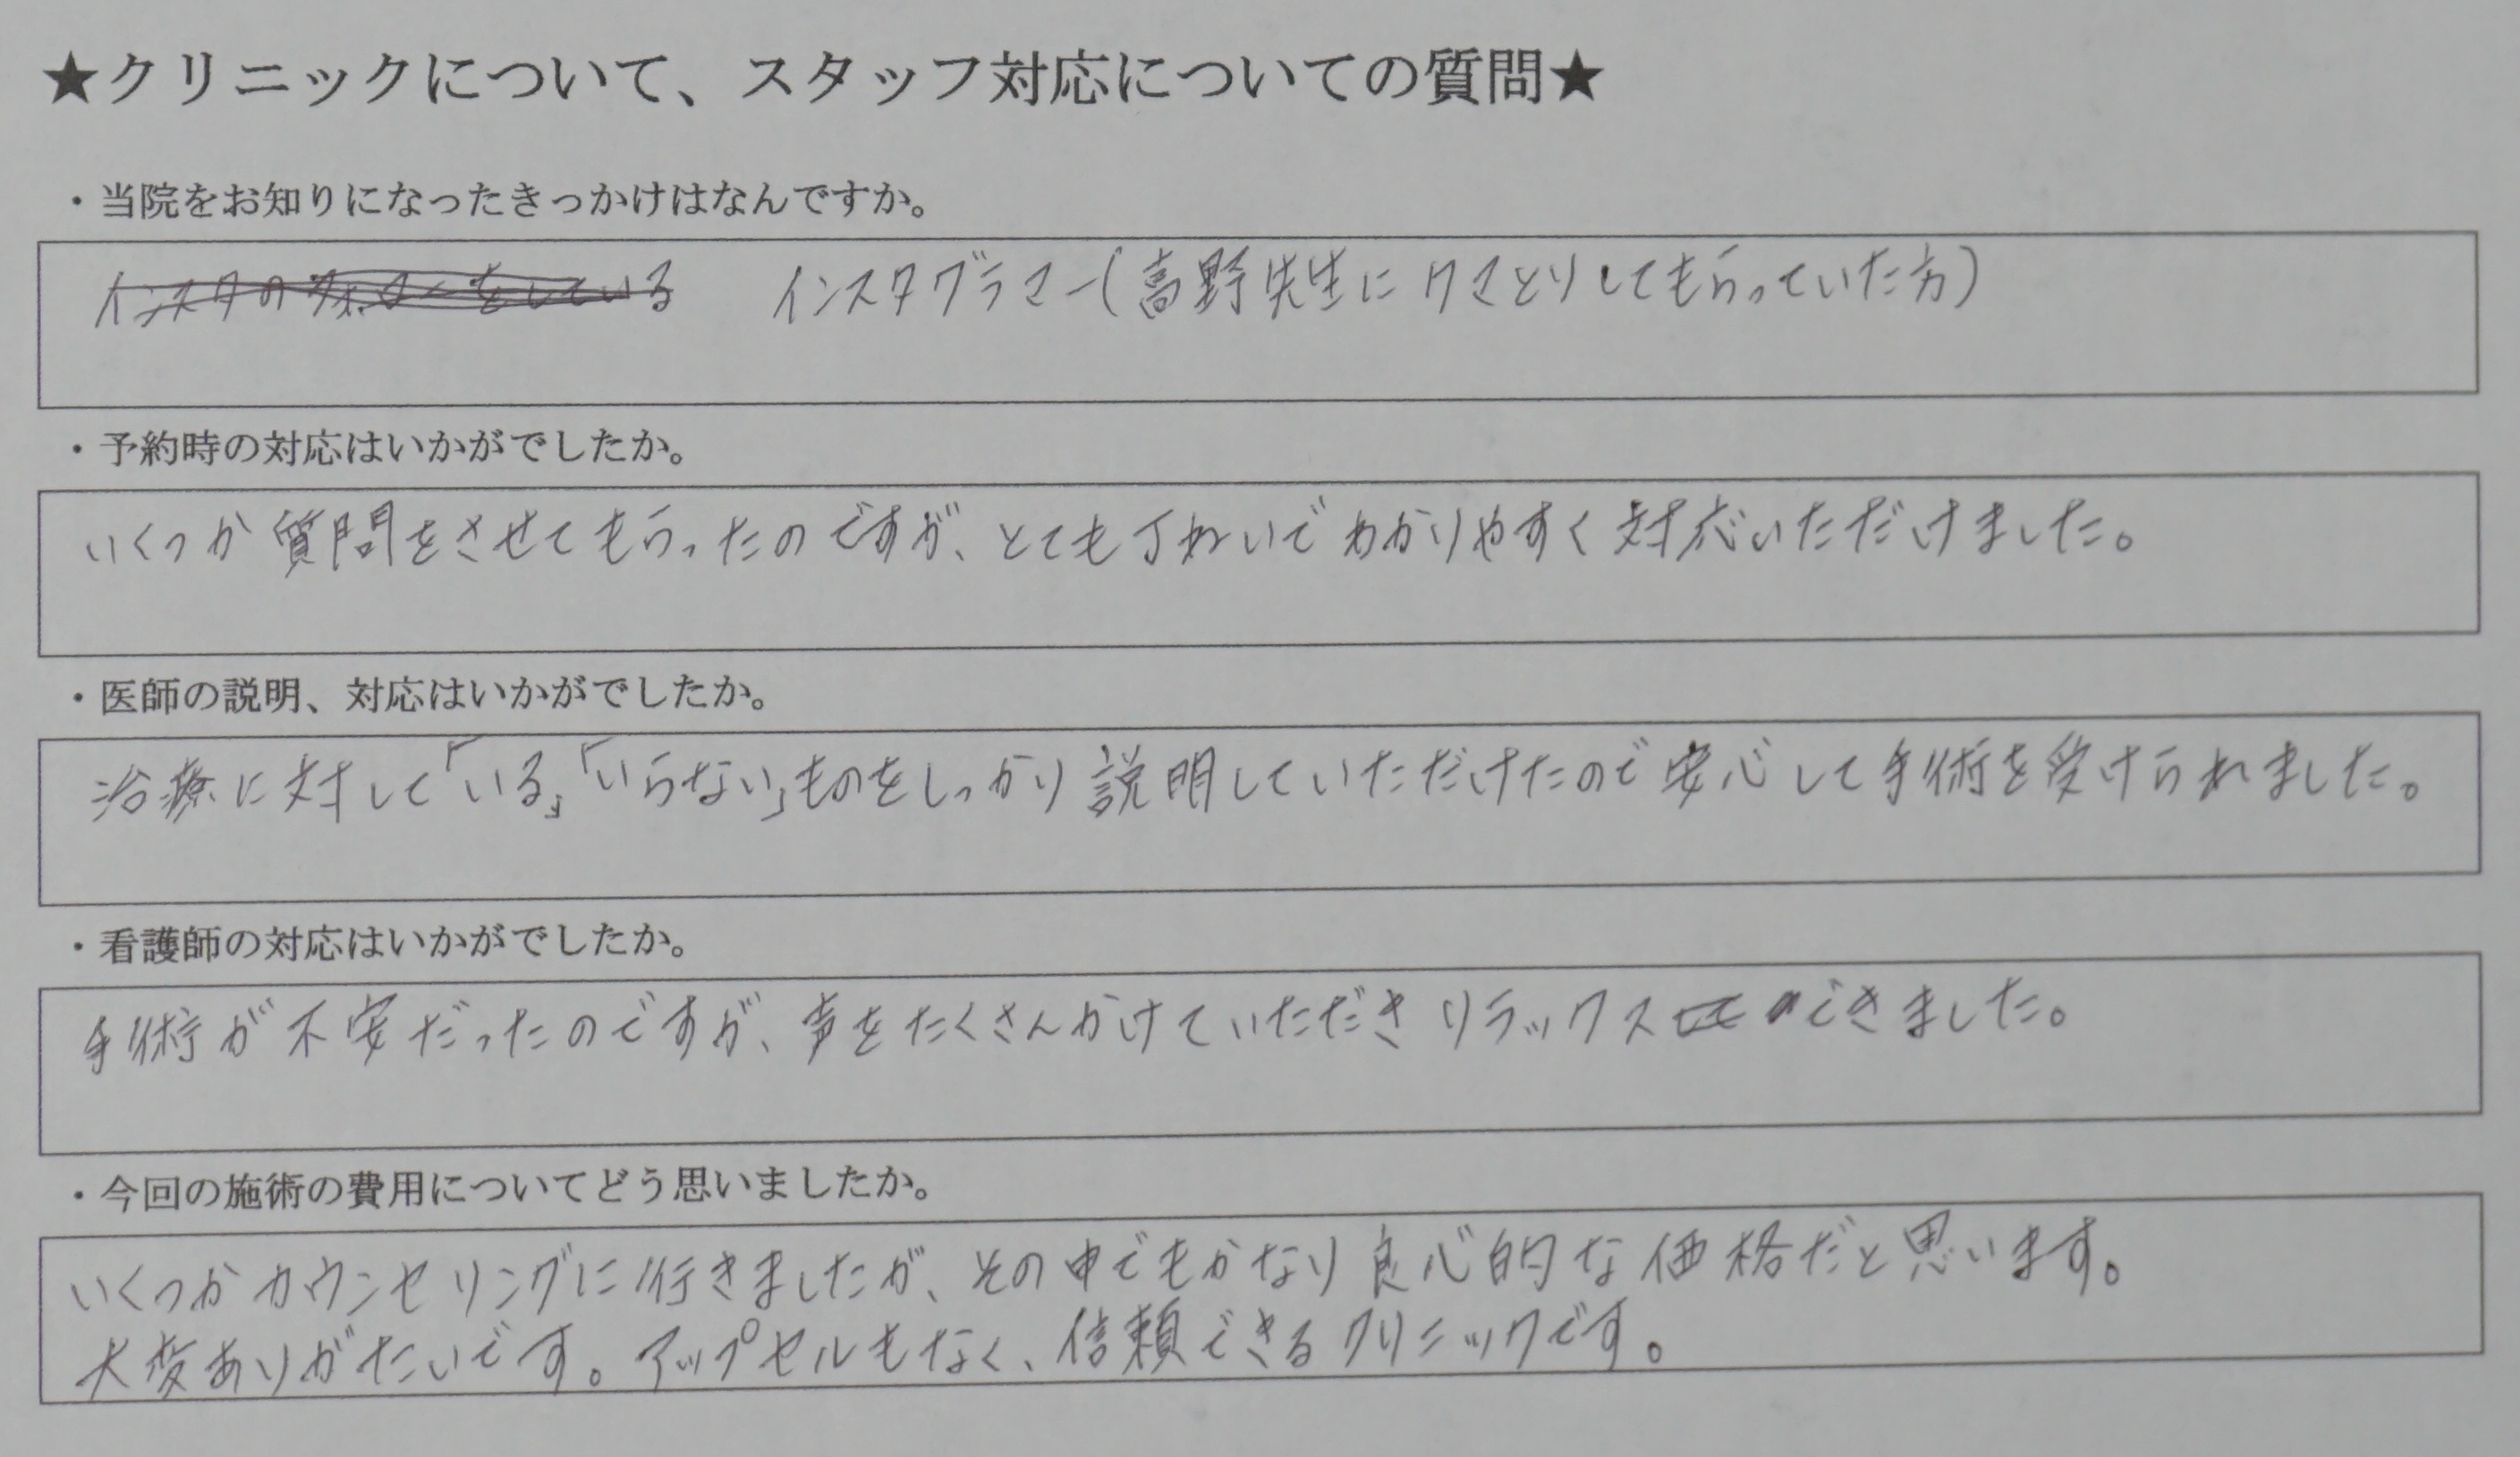 ★クリニックについて、スタッフ対応についての質問★
・当院をお知りになったきっかけはなんですか。
インスタグラマー(高野先生にクマとりしてもらっていた方)
・予約時の対応はいかがでしたか。
いくつか質問をさせてもらったのですが、とても丁ねいでわかりやすく対応いただけました。
・医師の説明、対応はいかがでしたか。
治療に対して「いる」「いらない」ものをしっかり説明していただけたので安心して手術を受けられました。
・看護師の対応はいかがでしたか。
手術が不安だったのですが、声をたくさんかけていただきリラックスできました。
・今回の施術の費用についてどう思いましたか。
いくつかカウンセリングに行きましたが、その中でもかなり良心的な価格だと思います。
大変ありがたいです。アップセルもなく、信頼できるクリニックです。